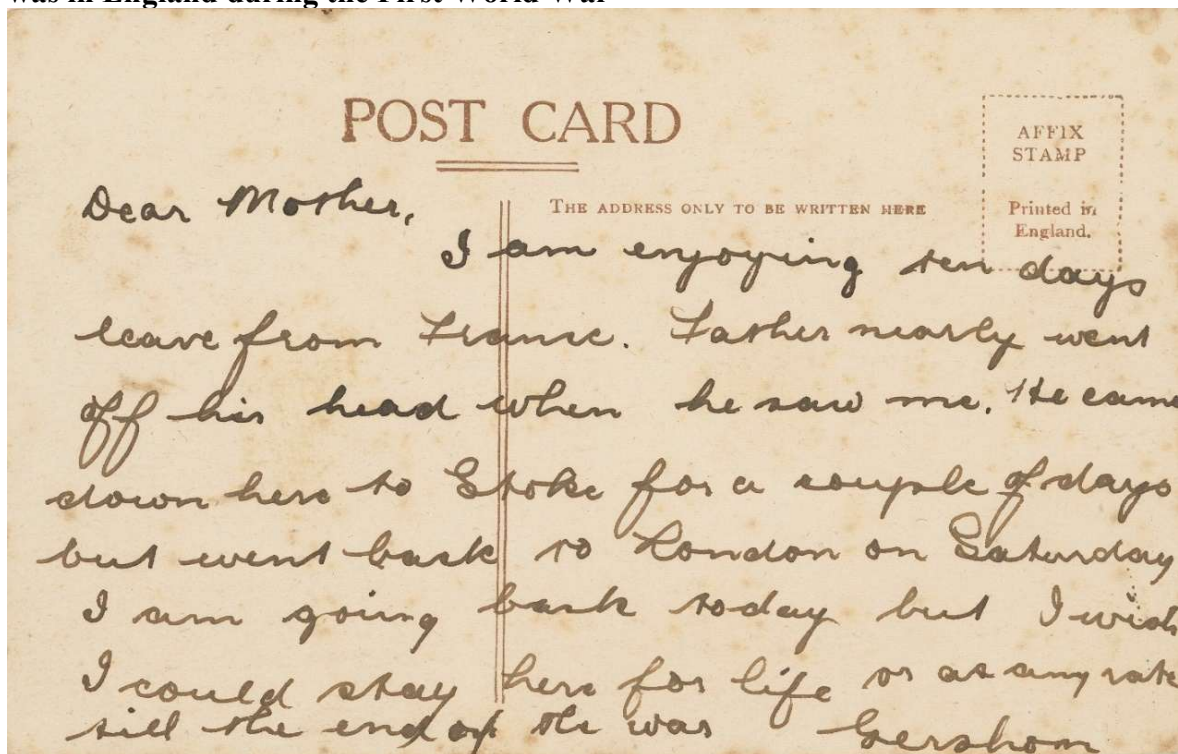 was in England during the First World War
POST CARD
AFFIX
STAMP
Printed in
England.
THE ADDRESS ONLY TO BE WRITTEN HERE
Dear Mother,
I am enjoying ten days
leave from France. Father nearly went
off his head when he saw me. He came
down here to Stoke for a couple of days
but went back to London on Saturday
I am going back today but I wish
I could stay here for life or at any rate
till the end of the war Gershom